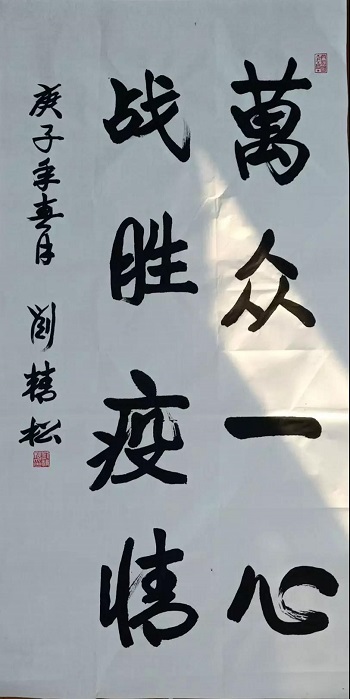 萬众一心
战胜疫情
庚子年春月 刘
松